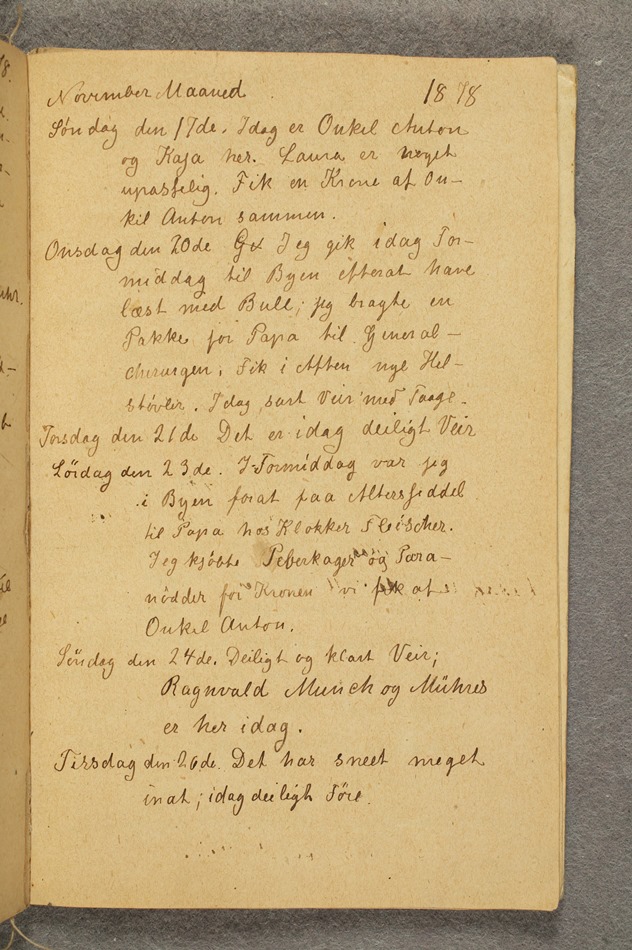 November Maaned 1878
Søndag den 17de. Idag er Onkel Anton
og Kaja her. Laura er noget
upasselig. Fik en Krone af On-
kel Anton sammen.
Onsdag den 20de Jeg gik idag For-
middag til Byen efterat have
læst med Bull; jeg bragte en
Pakke for Papa til General-
chirurgen. Fik i Aften nye Hel-
støvler. Idag surt Veir med Taage.
Torsdag den 21de Det er idag deiligt Veir
Lördag den 23de. I Formiddag var jeg
i Byen forat faa Altersseddel
til Papa hos Klokker Fleischer.
Jeg kjöbte Peberkager og Para-
nödder for Kronen vi fik af
Onkel Anton.
Söndag den 24de. Deiligt og klart Veir;
Ragnvald Munch og Mühres
er her idag.
Tirsdag den 26de. Det har sneet meget
inat; idag deiligh Före.